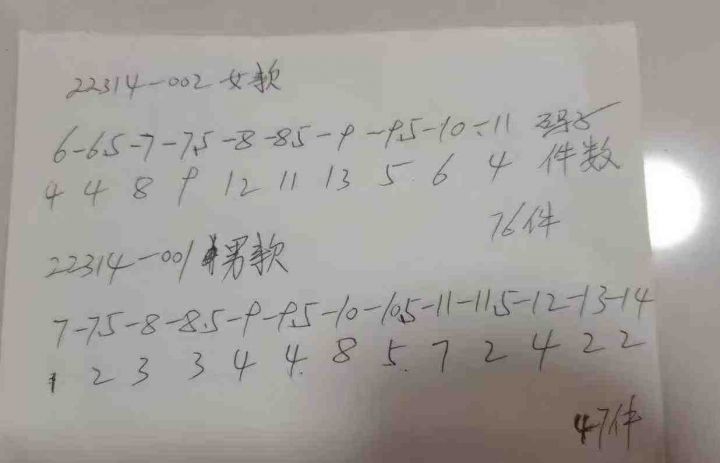 22314-002 女款
6-6.5-7-7.5-8-8.5-9-9.5-10-11 码子
4 4 8 9 12 11 13 5 6 4 件数
76件
22314-001 男款
7-7.5-8-8.5-9-9.5-10-10.5-11-11.5-12-13-14
1 2 3 3 4 4 8 5 7 2 4 2 2
47件